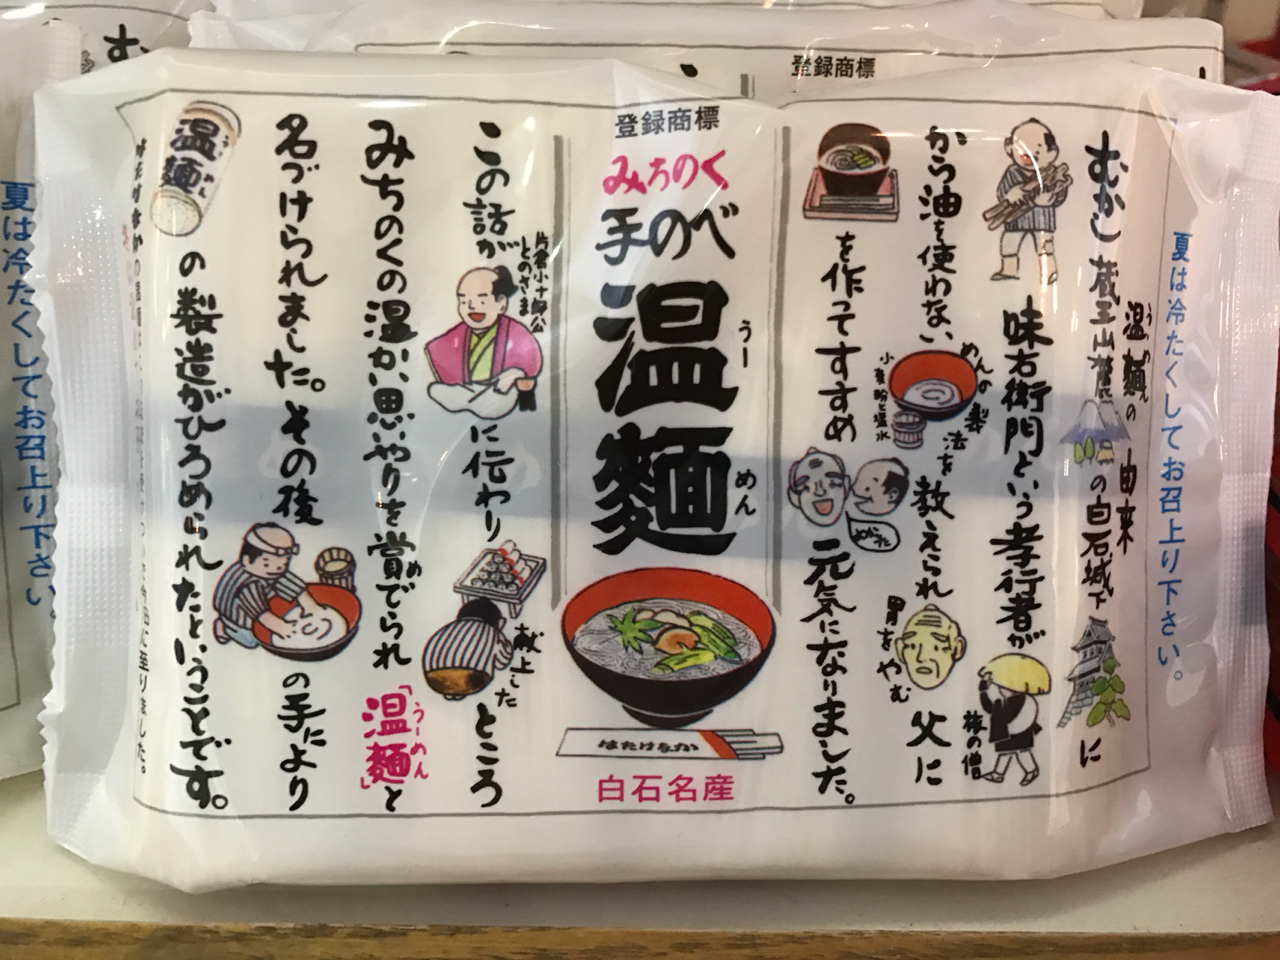 登録商標
夏は冷たくしてお召上り下さい。
温麺の由来
うーめん
むかし蔵王山麓の白石城下に
味右衛門という孝行者が
旅の僧
から油を使わない
めんの製法を教えられ
小麦粉と塩水
胃をやむ
父に
を作ってすすめ
よかった
元気になりました。
登録商標
みちのく
手のべ
温麺
うーめん
はたけなか
白石名産
この話が
片倉小十郎公
とのさま
に伝わり
献上した
ところ
みちのくの温かい思いやりを賞でられ
め
「温麺」と
うーめん
名づけられました。その後
の手により
温麺
の製造がひろめられたということです。
今日に至りました。
夏は冷たくしてお召上り下さい。
む